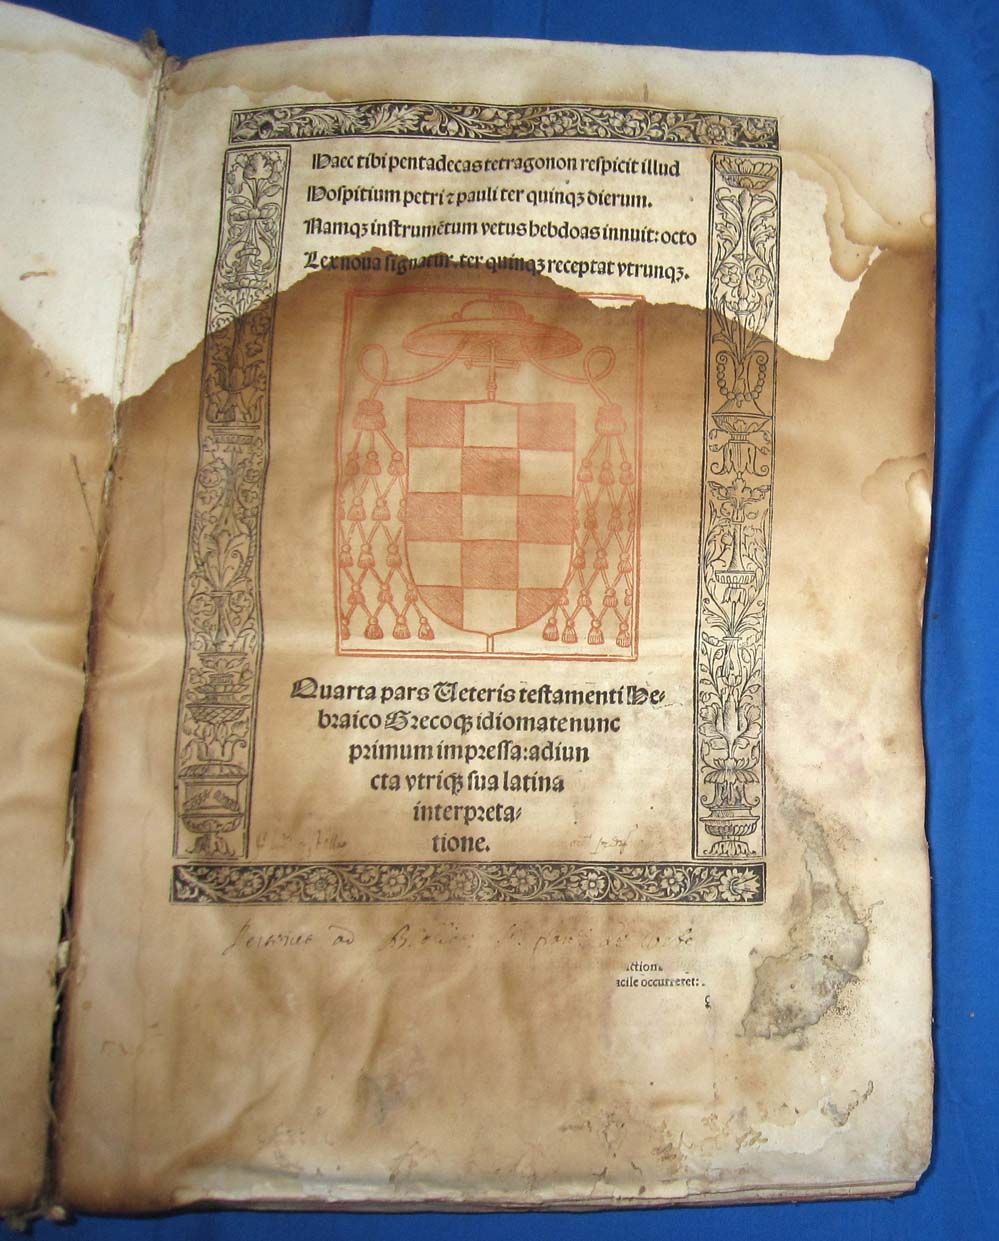 Haec tibi pentadecas tetragonon respicit illud
Hospitium petri ⁊ pauli ter quinqꝫ dierum.
Namqꝫ instrumētum vetus hebdoas innuit: octo
Lex nova signatur. ter quinqꝫ receptat vtrunqꝫ.
Quarta pars Veteris testamenti He-
braico Grecoqꝫ idiomate nunc
primum impressa: adiun
cta vtriqꝫ sua latina
interpreta-
tione.
ad
ction
acile occurreret: